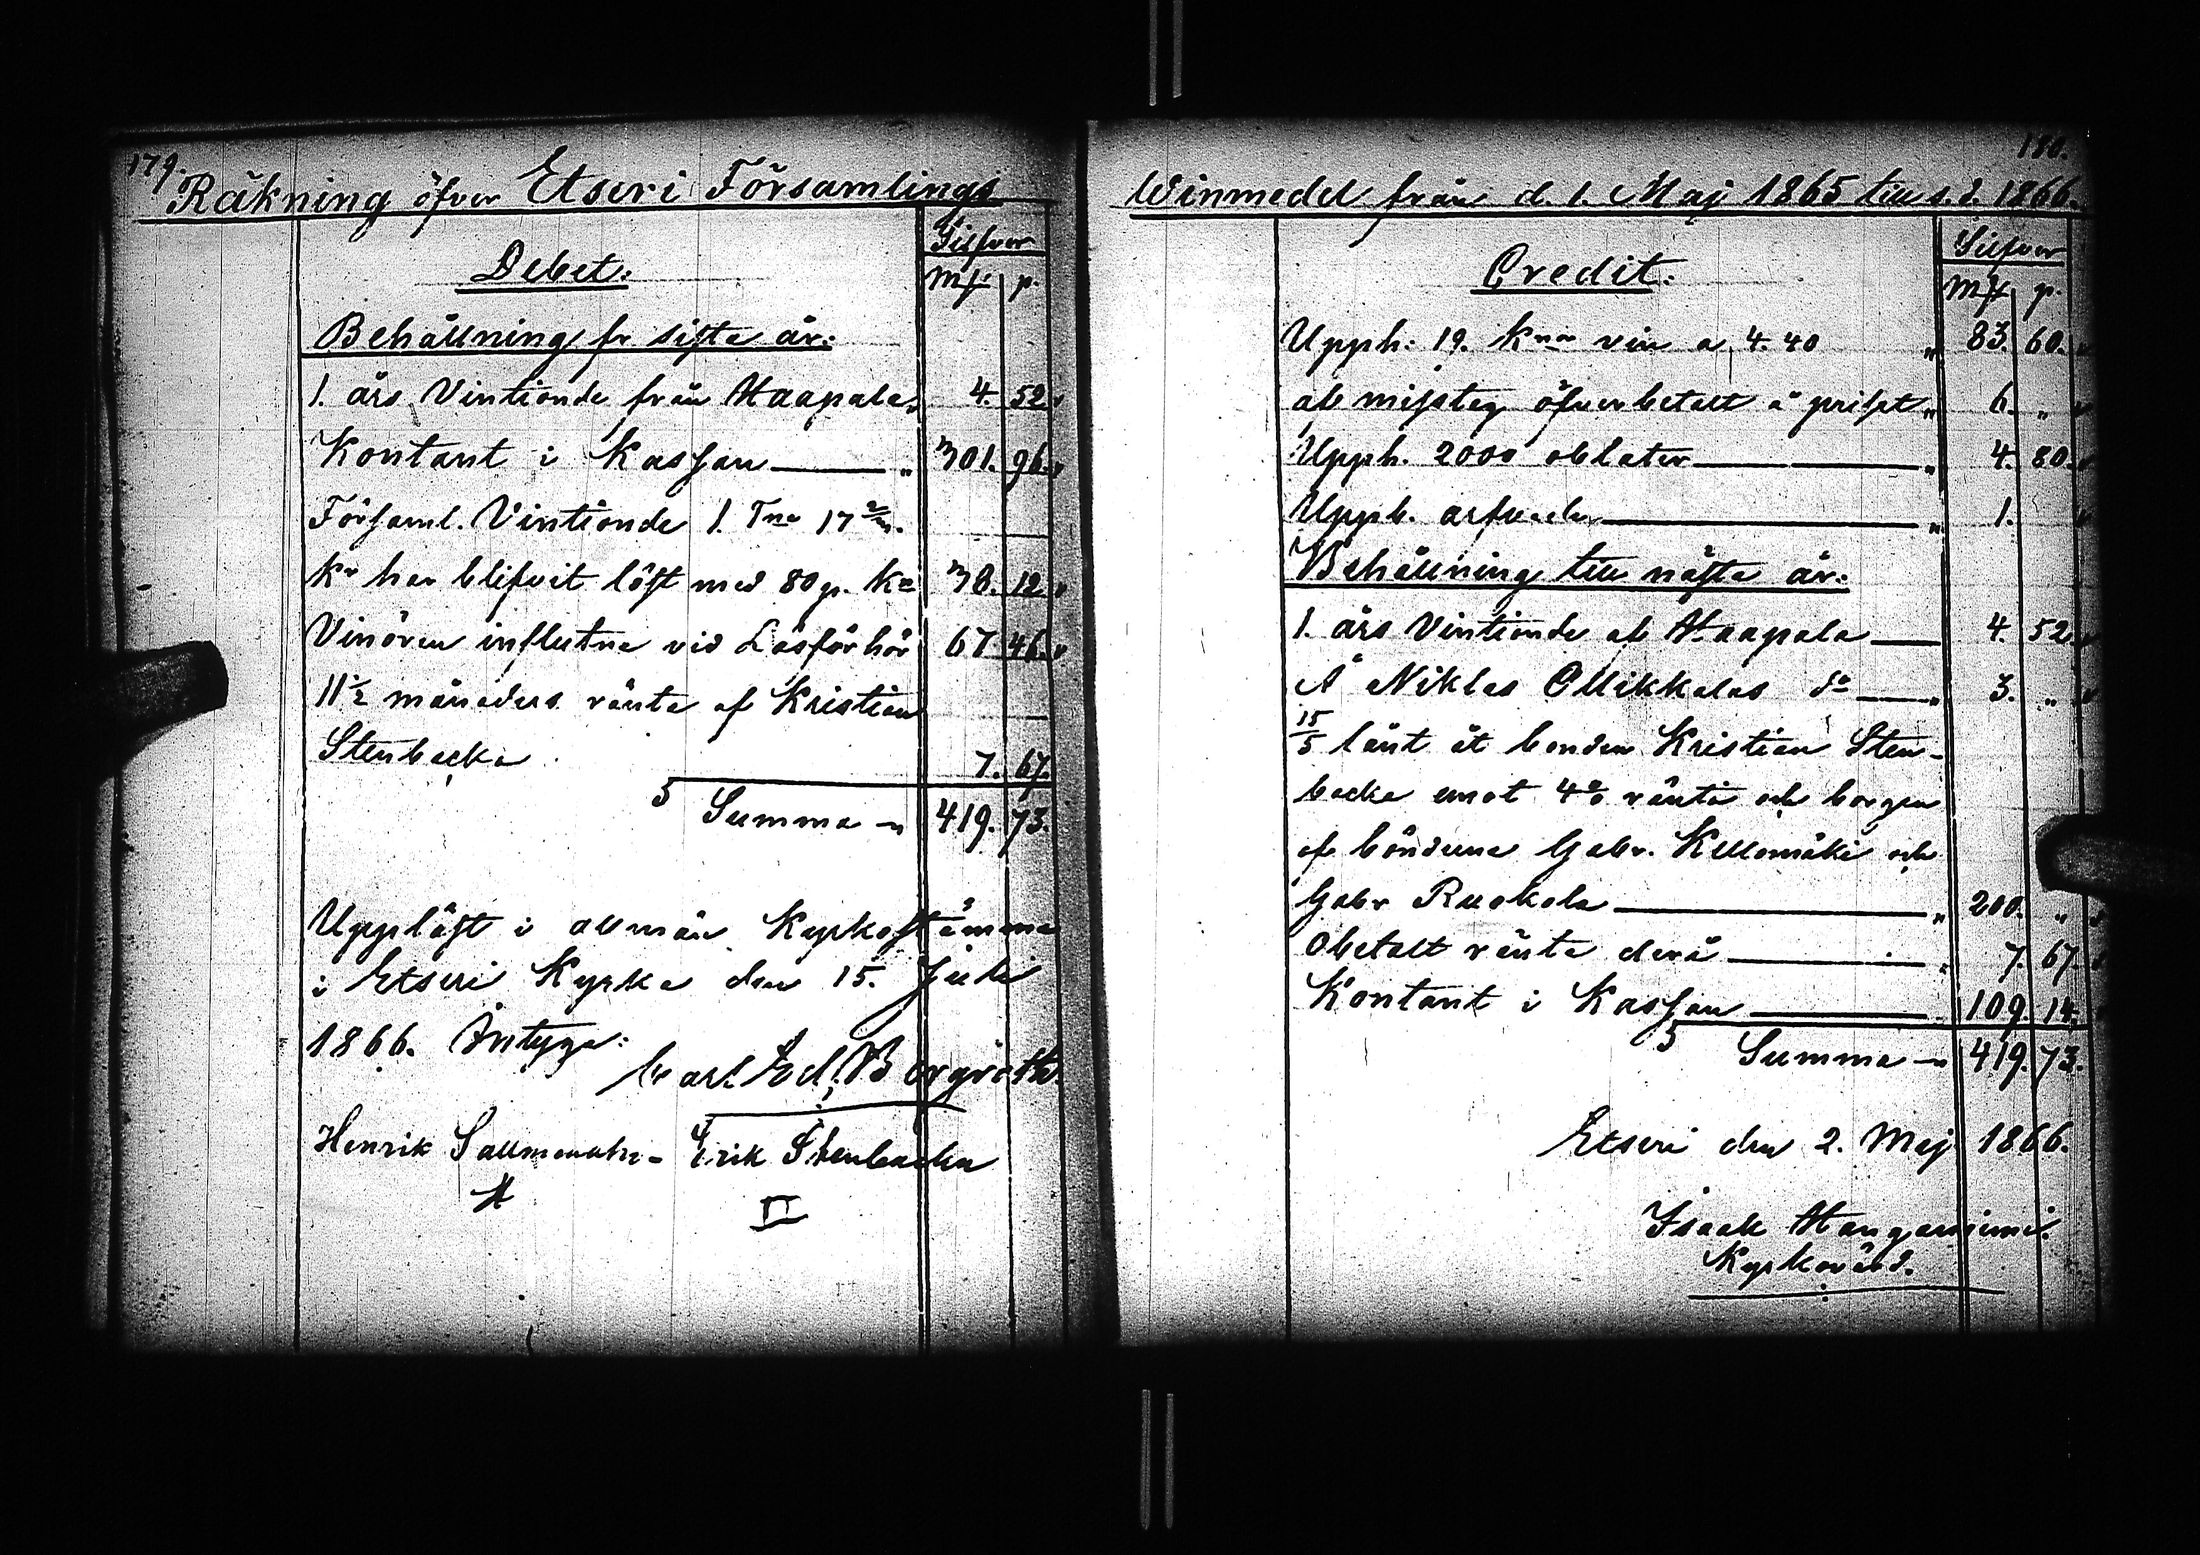 179.
Räkning öfver Etseri Församlings
Silfver
Debet:
Mk. p.
Behållning fr sista år:
1. års Vintionde från Haapala „ 4. 52.
Kontant i Kassan — „ 301. 96.
Församl. Vintionde 1. Tna 17
kr har blifvit löst med 80 p. kn 38. 12.
Vinören influtne vid Läsförhör 67 46.
11 1/2 månaders ränta af Kristian
Stenbacka 7. 67.
Summa — „ 419. 73.
Uppläst i allmän Kyrkostämma
i Etseri Kyrka den 15. Juli
1866. Intyga:
Carl Ed. Borgröth.
Henrik Erik Stenbacka
180.
Winmedel från d. 1. Maj 1865 till s. d. 1866.
Silfver
Credit:
Mk p.
Upph: 19. knor vin a 4. 40 „ 83. 60.
af misstag öfverbetalt å priset „ 6. „
Upph. 2000 oblater — „ 4. 80.
Upph. — „ 1.
Behållning till nästa år:
1. års Vintionde af Haapala — 4. 52
Å Niklas Ollikkalas do — „ 3. „
15/5 lånt åt bonden Kristian Sten-
backa emot 4% ränta och borgen
af bönderna Gabr. Kellomäki och
Gabr Ruokola — „ 200. „
Obetalt ränta derå — „ 7. 67.
Kontant i Kassan — 109. 14.
Summa — „ 419. 73.
Etseri den 2. Maj 1866.
Isaak Hangasniemi.
Kyrkovärd.